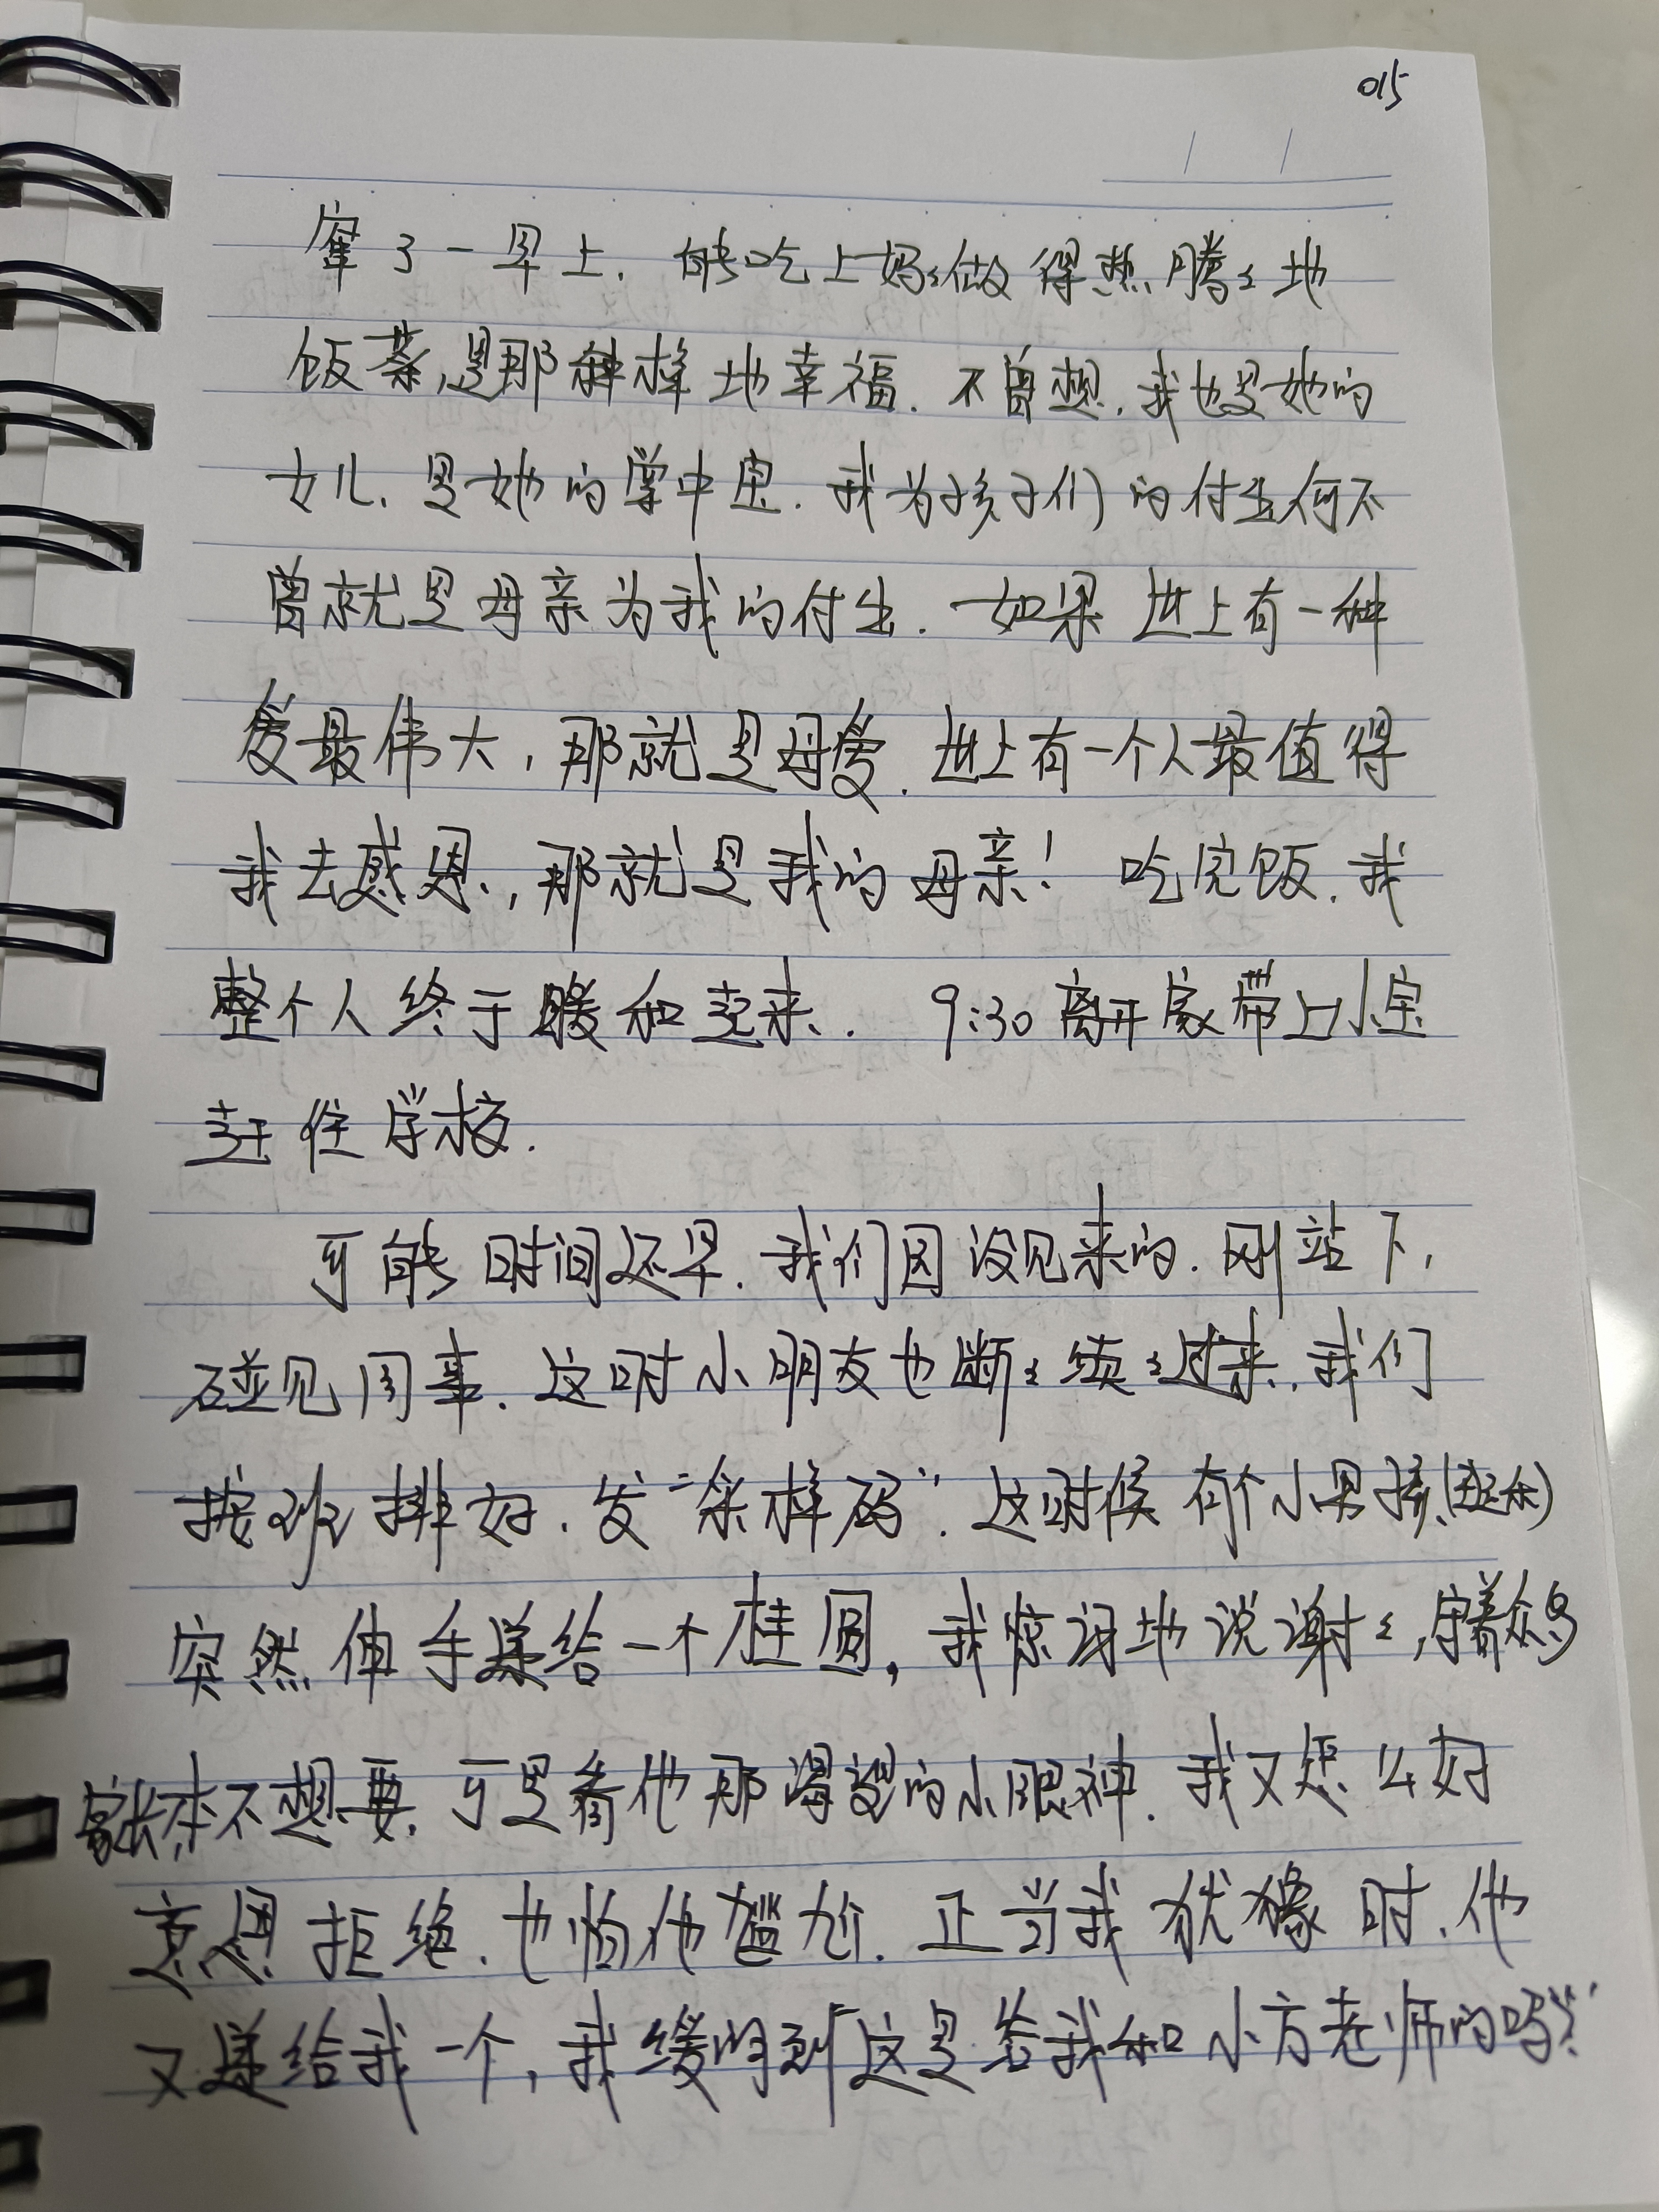 015
了一早上.能吃上妈妈做得热腾腾地
饭菜,是那种样地幸福.不曾想.我也是她的
女儿.是她的掌中宝.我为孩子们的付出何不
曾就是母亲为我的付出.如果世上有一种
爱最伟大,那就是母爱.世上有一个人最值得
我去感恩,那就是我的母亲!吃完饭.我
整个人终于暖和起来.9:30离开家带上小宝
赶往学校.
可能时间还早.我们园没见来的.刚站下,
碰见同事.这时小朋友也断断续续过来.我们
按班排好.发“采样码”.这时候有个小男孩
突然伸手递给一个桂圆,我惊讶地说谢谢,守着众多
家长本不想要.可是看他那渴望的小眼神.我又怎么好
意思拒绝.也怕他尴尬.正当我犹豫时.他
又递给我一个,我缓的到“这是给我和小方老师的吗?”